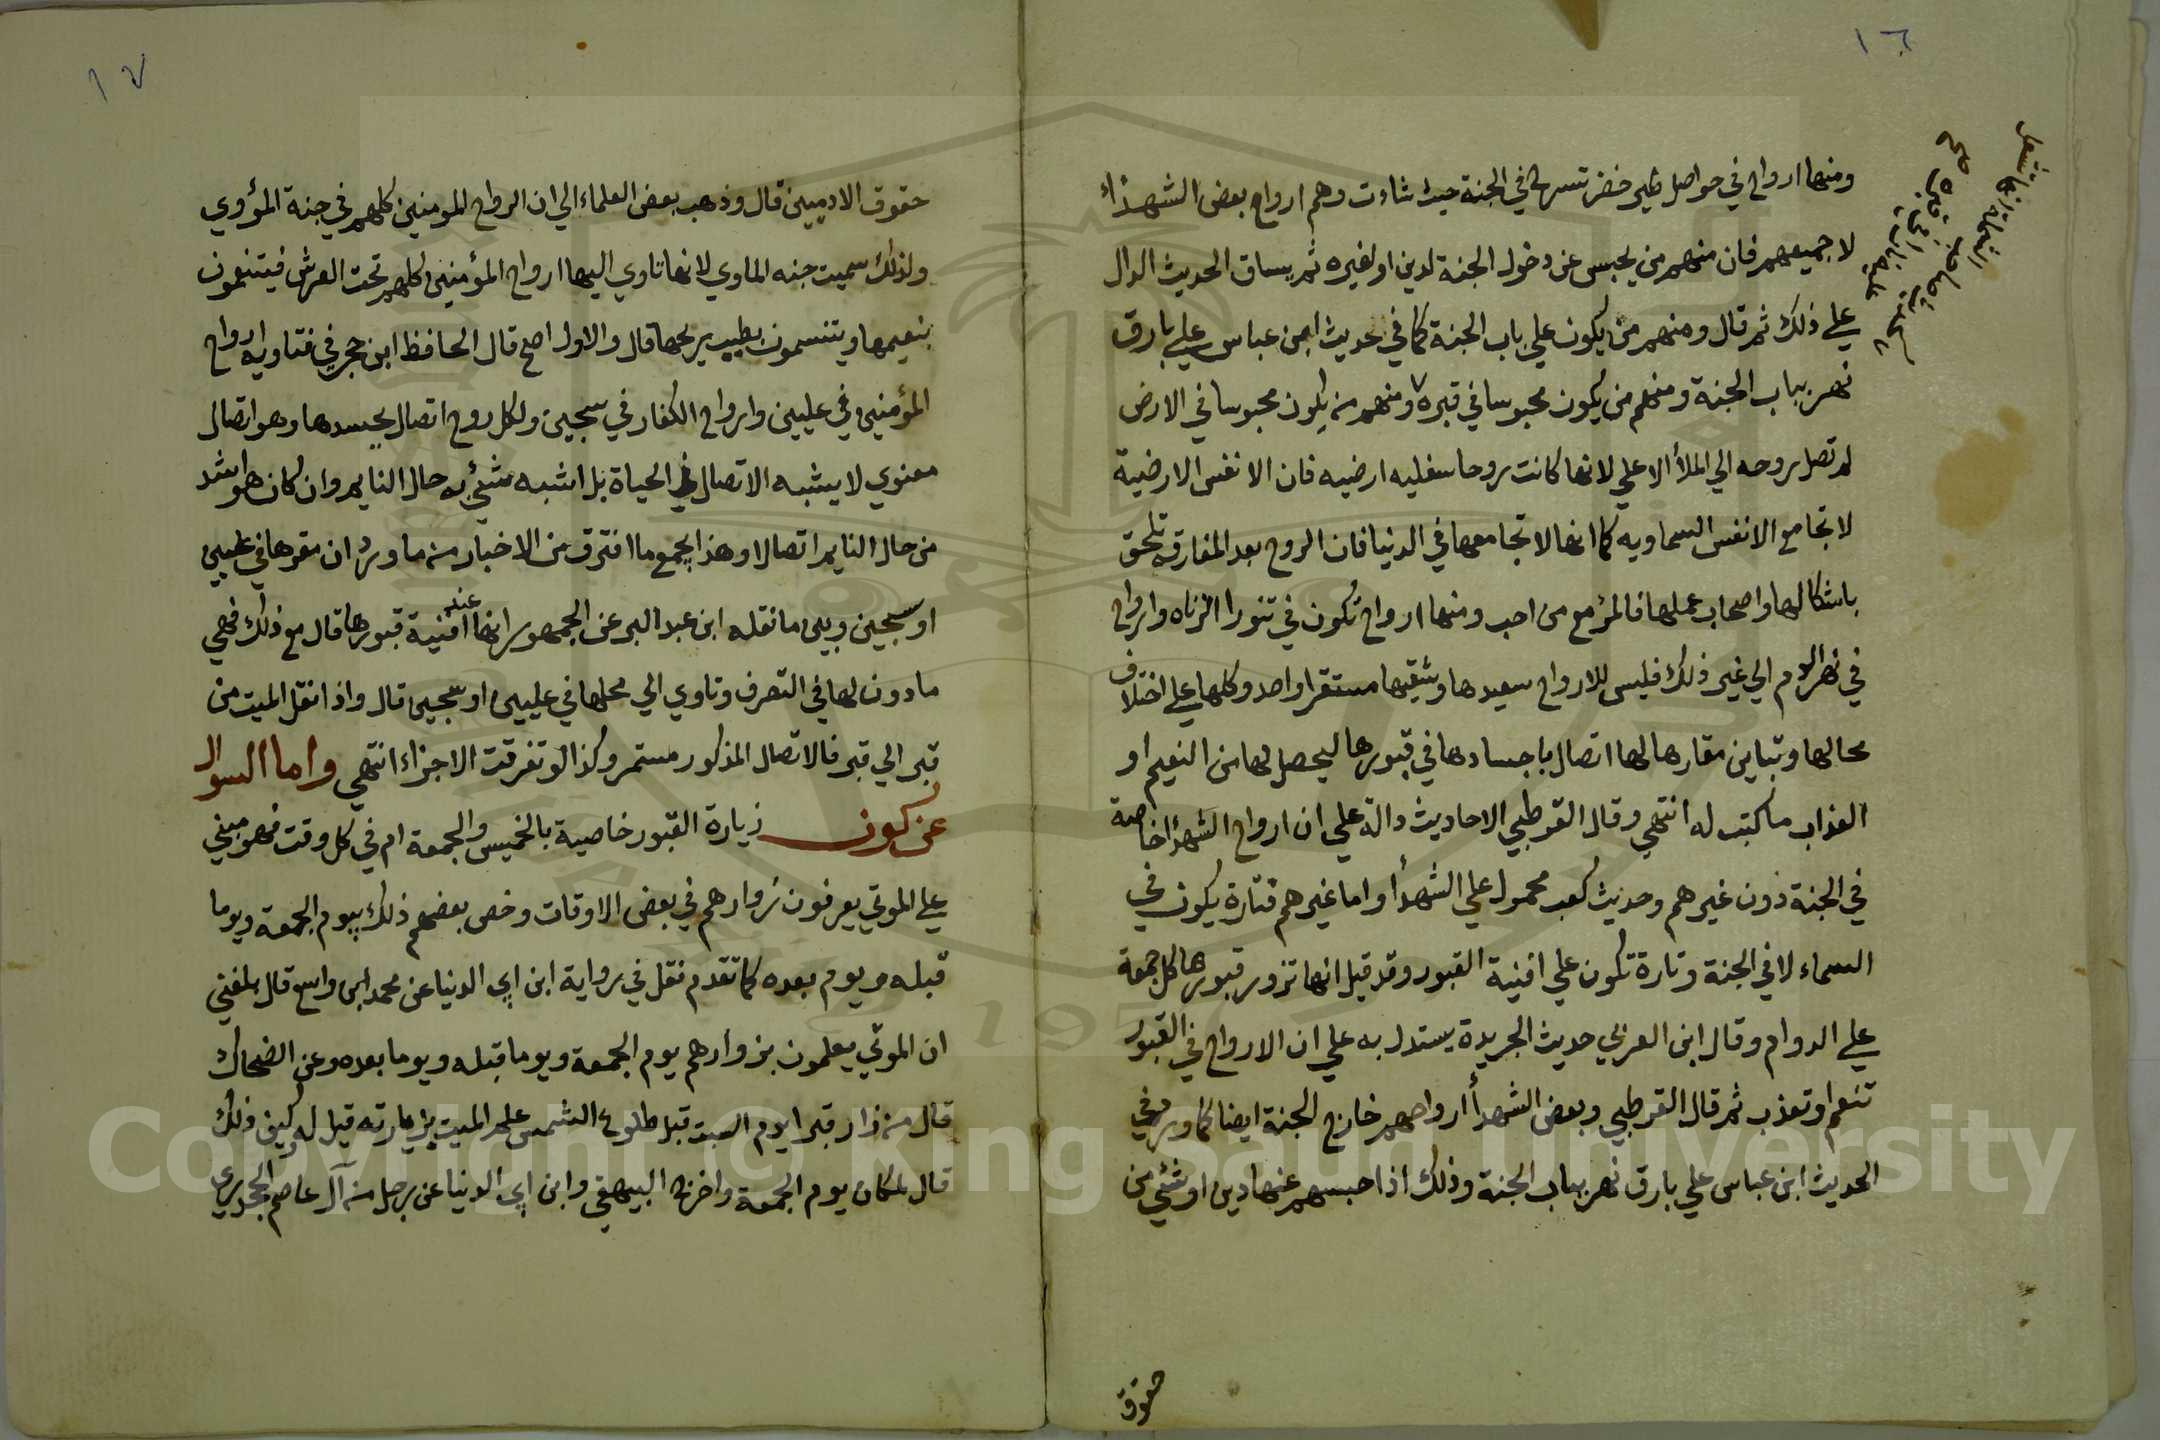 ١٦
ومنها ارواح في حواصل طير خضر تسرح في الجنة حيث شاءت وهم ارواح بعض الشهداء
لا جميعهم فان منهم من يحبس عن دخول الجنة لدين او لغيره ثم ساق الحديث الدال
علي ذلك ثم قال ومنهم من يكون علي باب الجنة كما في حديث ابن عباس علي بارق
نهر بباب الجنة ومنهم من يكون محبوسا في قبره ومنهم من يكون محبوسا في الارض
لم تصل روحه الي الملأ الاعلي لانها كانت روحا سفليه ارضيه فان الانفس الارضية
لا تجامع الانفس السماويه كما انها لا تجامعها في الدنيا فان الروح بعد المفارقه تلحق
باشكالها واصحاب عملها فالمرؤ مع من احب ومنها ارواح تكون في تنور الزناه وارواح
في نهر الدم الي غير ذلك فليس للارواح سعيدها وشقيها مستقر واحد وكلها علي اختلاف
محالها وتباين مقارها لها اتصال باجسادها في قبورها ليحصل لها من النعيم او
العذاب ما كتب له انتهي وقال القرطبي الاحاديث دالة علي ان ارواح الشهدأ خاصة
في الجنة دون غيرهم وحديث كعب محمول علي الشهدأ واما غيرهم فتارة يكون في
السماء لا في الجنة وتارة تكون علي افنية القبور وقد قيل انها تزور قبورها كل جمعة
علي الدوام وقال ابن العربي حديث الجريدة يستدل به علي ان الارواح في القبور
تنعم او تعذب ثم قال القرطبي وبعض الشهدأ ارواحهم خارج الجنة ايضا كما ورد في
الحديث ابن عباس علي بارق نهر بباب الجنة وذلك اذا حبسهم عنها دين او شئ من
حقوق
١٧
حقوق الادميين قال وذهب بعض العلماء الي ان ارواح المومنين كلهم في جنة المؤوي
ولذلك سميت جنه الماوي لانها تاوي اليها ارواح المؤمنين كلهم تحت العرش فيتنعمون
بنعيمها ويتنسمون بطيب ريحها قال والاول اصح قال الحافظ ابن حجر في فتاويه ارواح
المؤمنين في عليين وارواح الكفار في سجين ولكل روح اتصال بجسدها وهو اتصال
معنوي لا يشبه الاتصال في الحياة بل اشبه شئ به حال النايم وان كان هو اشد
من حال النايم اتصالا وهذا يجمع ما افترق من الاخبار من ما ورد ان مقرها في عليين
او سجين وبين ما نقله ابن عبد البر عن الجمهور انها عند افنية قبورها قال مع ذلك فهي
ماذون لها في التصرف وتاوي الي محلها في عليين او سجين قال واذا نقل الميت من
قبر الي قبر فالاتصال المذكور مستمر وكذا لو تفرقت الاجزاء انتهي واما السوال
عن كون زيارة القبور خاصية بالخميس والجمعة ام في كل وقت فهو مبني
علي الموتي يعرفون زوارهم في بعض الاوقات وخص بعضهم ذلك بيوم الجمعة ويوما
قبله ويوم بعده كما تقدم نقل في رواية ابن ابي الدنيا عن محمد ابن واسع قال بلغني
ان الموتي يعلمون بزوارهم يوم الجمعة ويوما قبله ويوما بعده وعن الضحاك
قال من زار قبر ايوم السبت قبل طلوع الشمس علم الميت بزيارته قيل له وكيف ذلك
قال لمكان يوم الجمعة واخرج البيهقي وابن ابي الدنيا عن رجل من آل عاصم الجحدري
Copyright © King Saud University